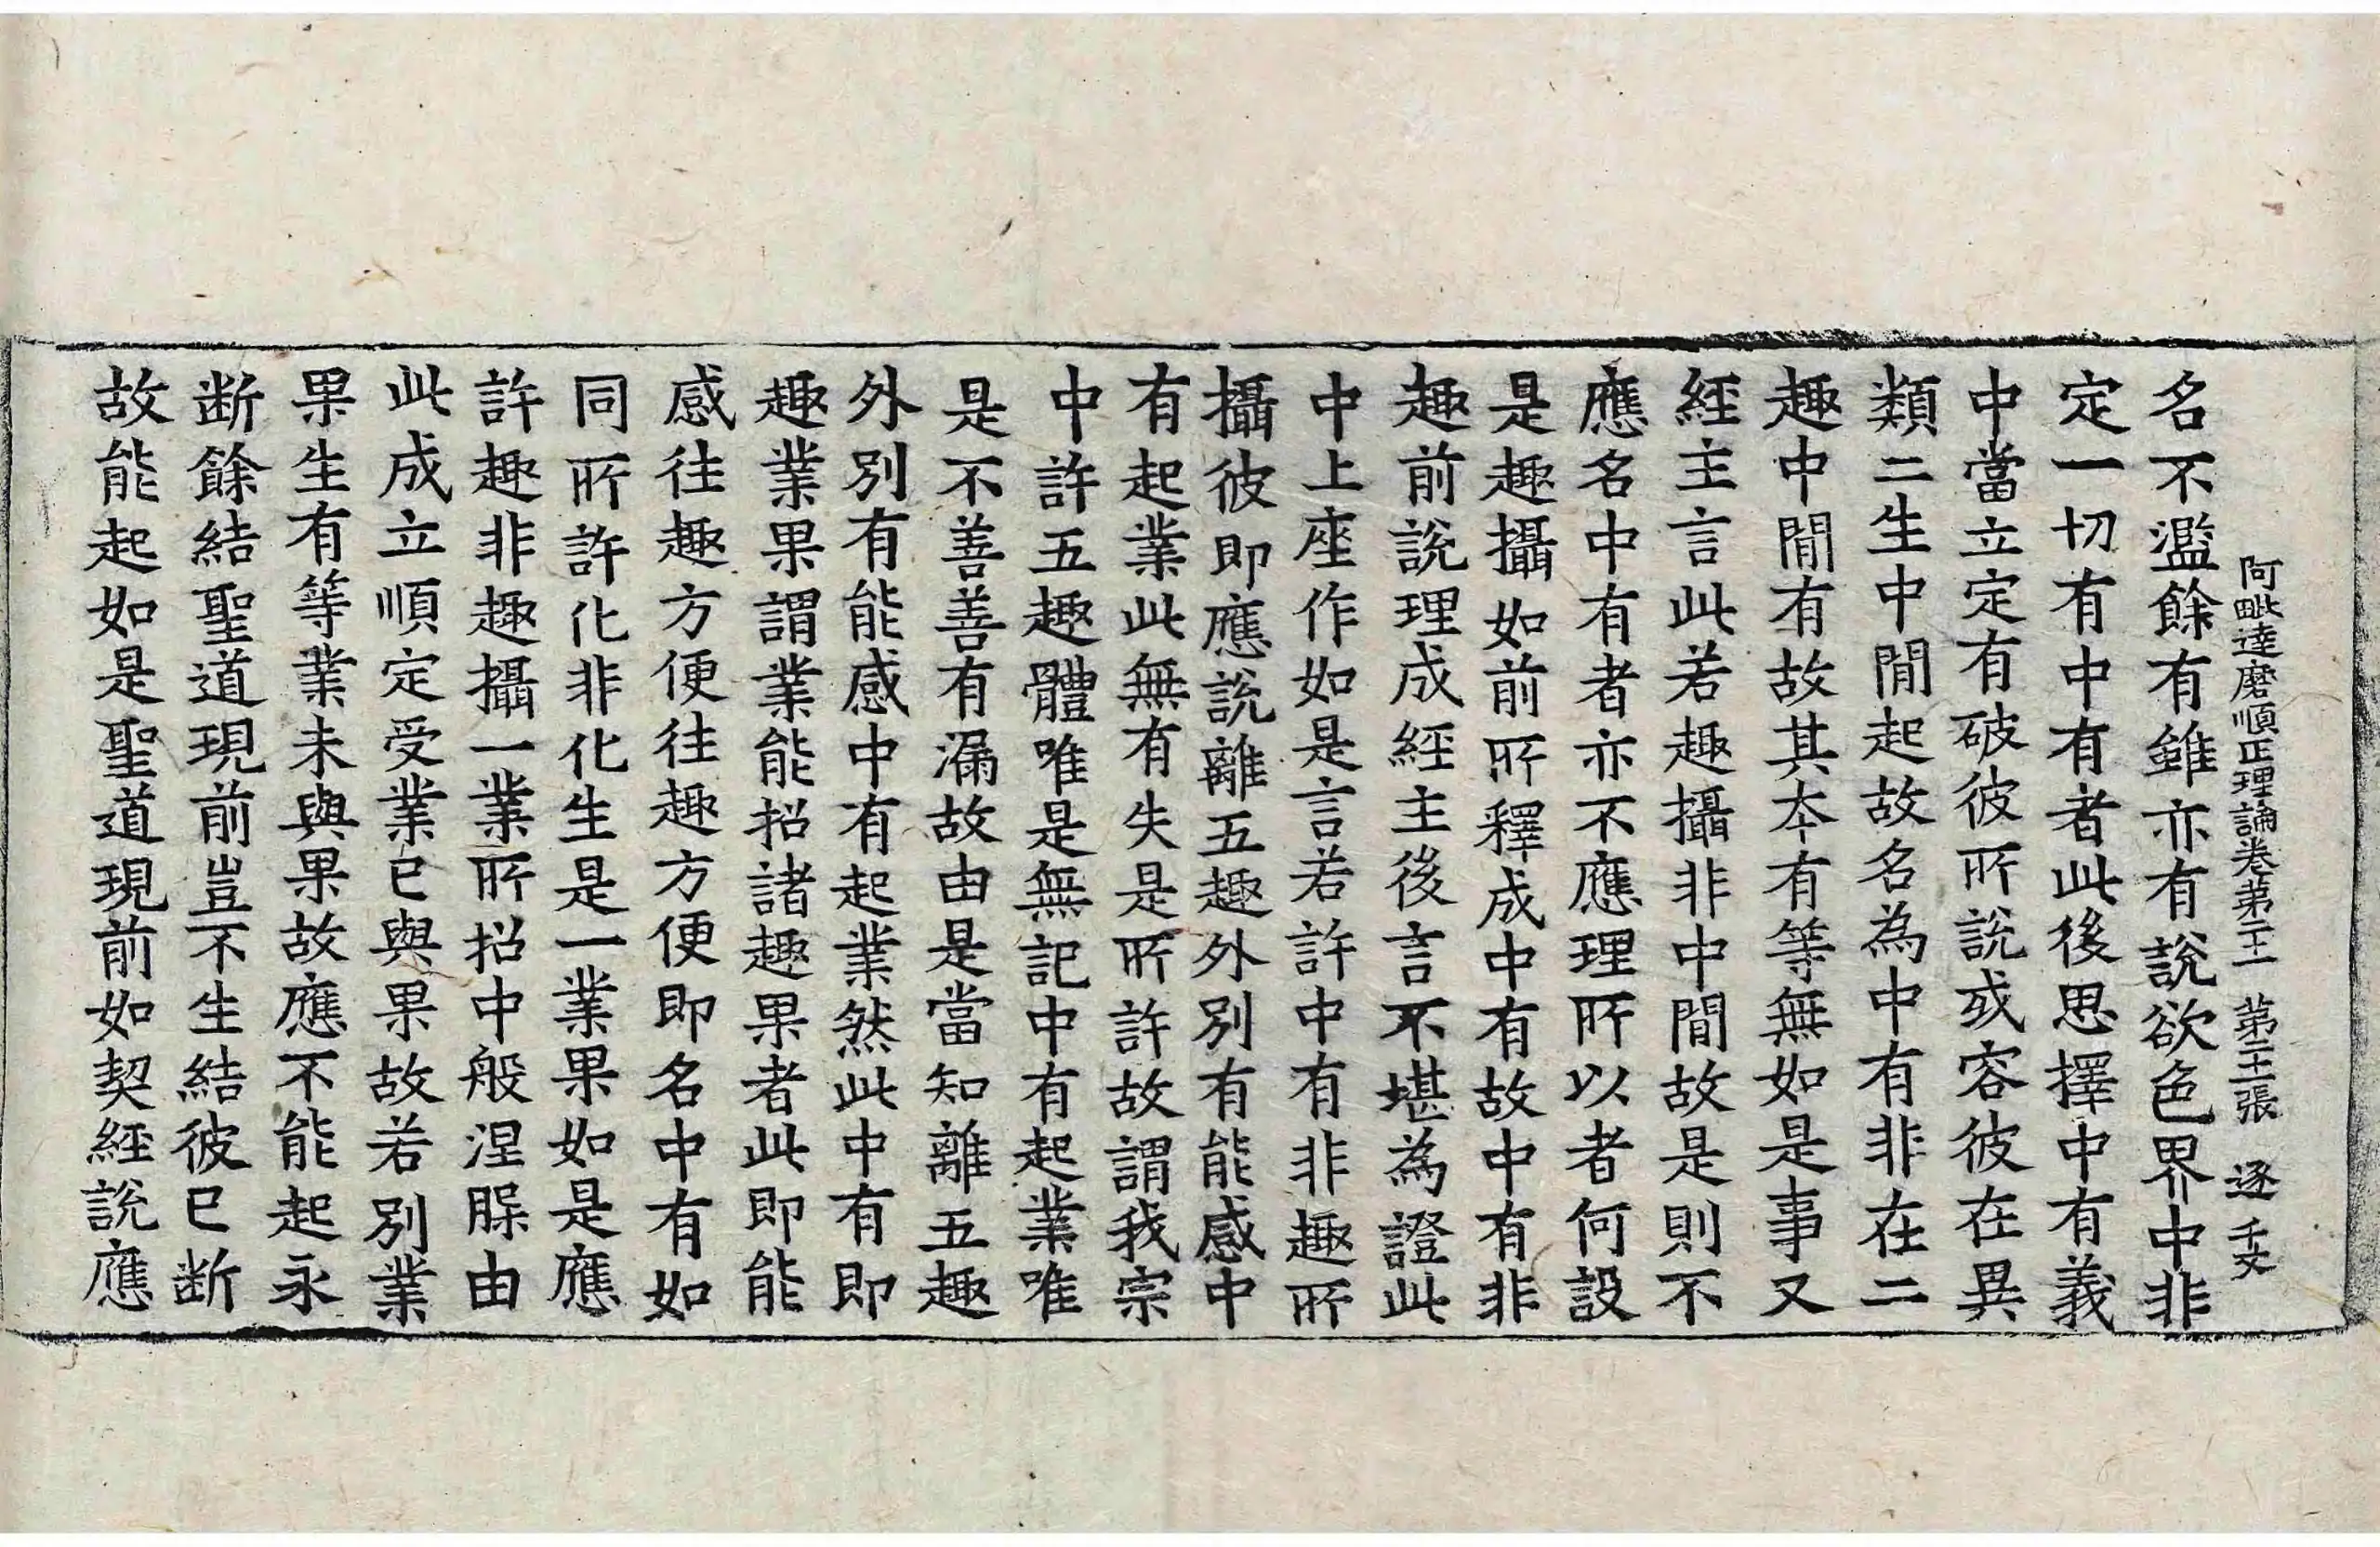 阿毗達磨順正理論卷第二十一 第二十張 逐 千文
名不濫餘有雖亦有說欲色界中非
定一切有中有者此後思擇中有義
中當立定有破彼所說或容彼在異
類二生中間起故名為中有非在二
趣中間有故其本有等無如是事又
經主言此若趣攝非中間故是則不
應名中有者亦不應理所以者何設
是趣攝如前所釋成中有故中有非
趣前說理成經主後言不堪為證此
中上座作如是言若許中有非趣所
攝彼即應說離五趣外別有能感中
有起業此無有失是所許故謂我宗
中許五趣體唯是無記中有起業唯
是不善善有漏故由是當知離五趣
外別有能感中有起業然此中有即
趣業果謂業能招諸趣果者此即能
感往趣方便往趣方便即名中有如
同所許化非化生是一業果如是應
許趣非趣攝一業所招中般涅脲由
此成立順定受業已與果故若別業
果生有等業未與果故應不能起永
断餘結聖道現前豈不生結彼已断
故能起如是聖道現前如契經說應